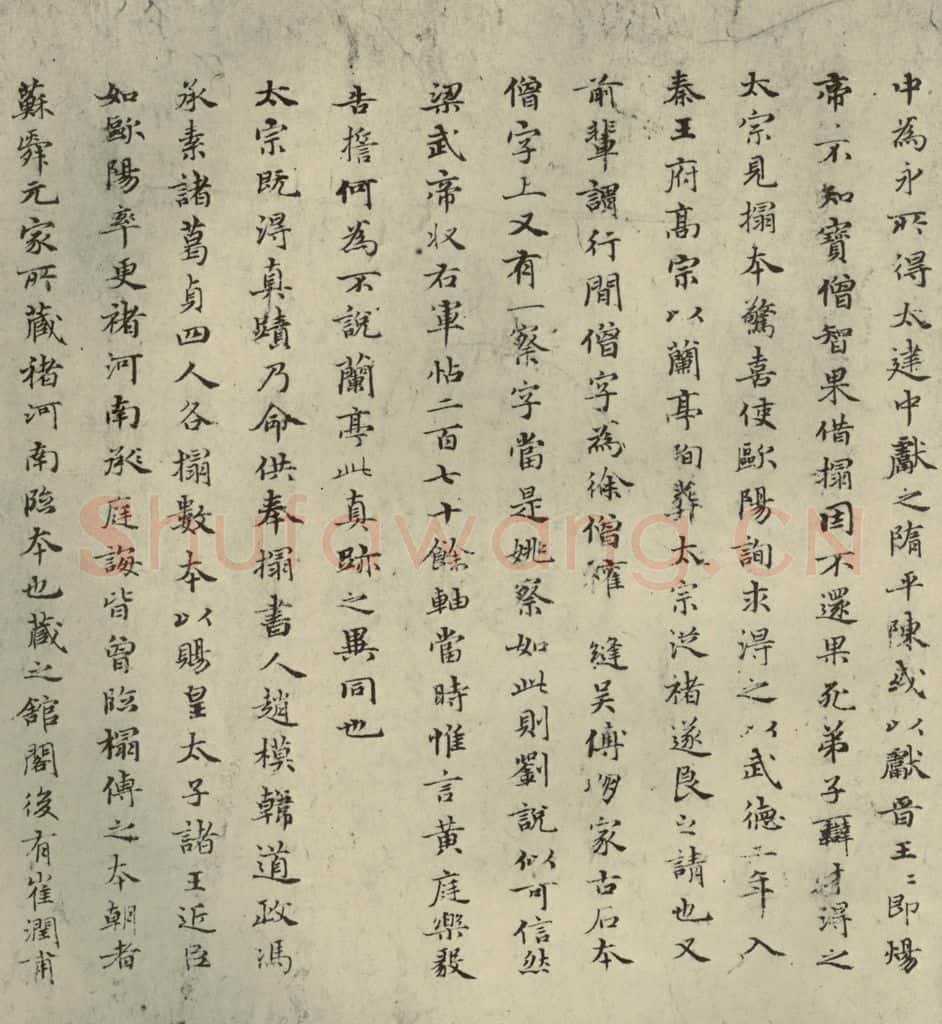 中為永所得太建中獻之隋平陳或以獻晉王〻即煬
帝不知寶僧智果借搨因不還果死弟子辯才得之
太宗見搨本驚喜使歐陽詢求得之以武德二年入
秦王府高宗以蘭亭殉葬太宗從褚遂良之請也又
前輩謂行間僧字為徐僧權 縫吳傅朋家古石本
僧字上又有一察字當是姚察如此則劉說似可信然
梁武帝收右軍帖二百七十餘軸當時惟言黃庭樂毅
告誓何為不說蘭亭此真跡之異同也
太宗既得真蹟乃命供奉搨書人趙模韓道政馮
承素諸葛貞四人各搨數本以賜皇太子諸王近臣
如歐陽率更褚河南承庭誨皆曾臨搨傳之本朝者
蘇舜元家所藏褚河南臨本也藏之館閣後有崔潤甫
Shufawang.CN